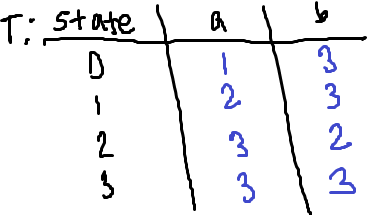 T: state a b
0 1 3
1 2 3
2 3 2
3 3 3